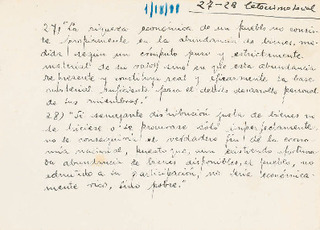 27-28 Letecinolaval
27) "La riqueza económica de un pueblo no consis-
te propiamente en la abundancia de bienes, me-
dida según un cómputo puro y estrictamente
material de su valor, sino en que esta abundancia
represente y constituya real y eficazmente la base
material suficiente para el debido desarrollo personal
de sus miembros."
28) "Si semejante distribución justa de bienes no
se hiciese o se procurase sólo imperfectamente,
no se conseguiría el verdadero fin de la econo-
mía nacional, puesto que, aun existiendo afortuna-
da abundancia de bienes disponibles, el pueblo, no
admitido a su participación, no sería económica-
mente rico, sino pobre."